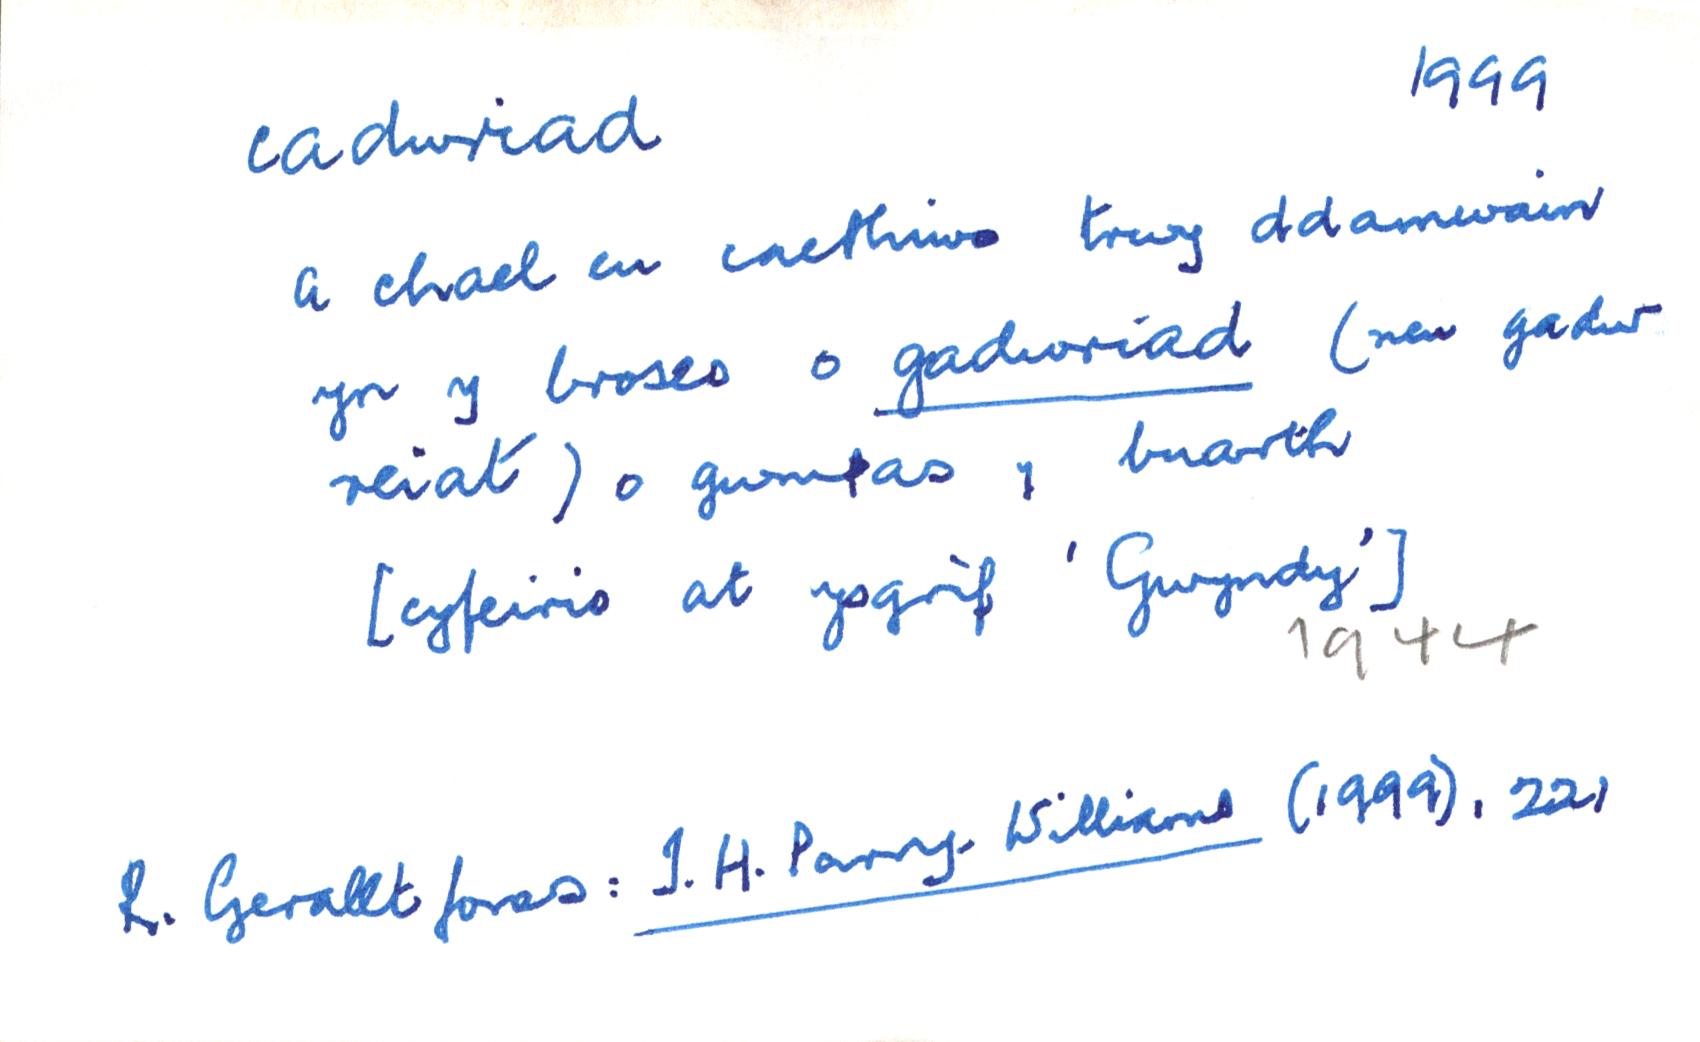 1999
cadwriad
a chael eu caethiwo trwy ddamwain
yn y broses o gadwriad (neu gadw-
reiat) o gwmpas y buarth
[cyfeirio at ysgrif 'Gwyndy']
1944
R. Gerallt Jones: T. H. Parry-Williams (1999), 221